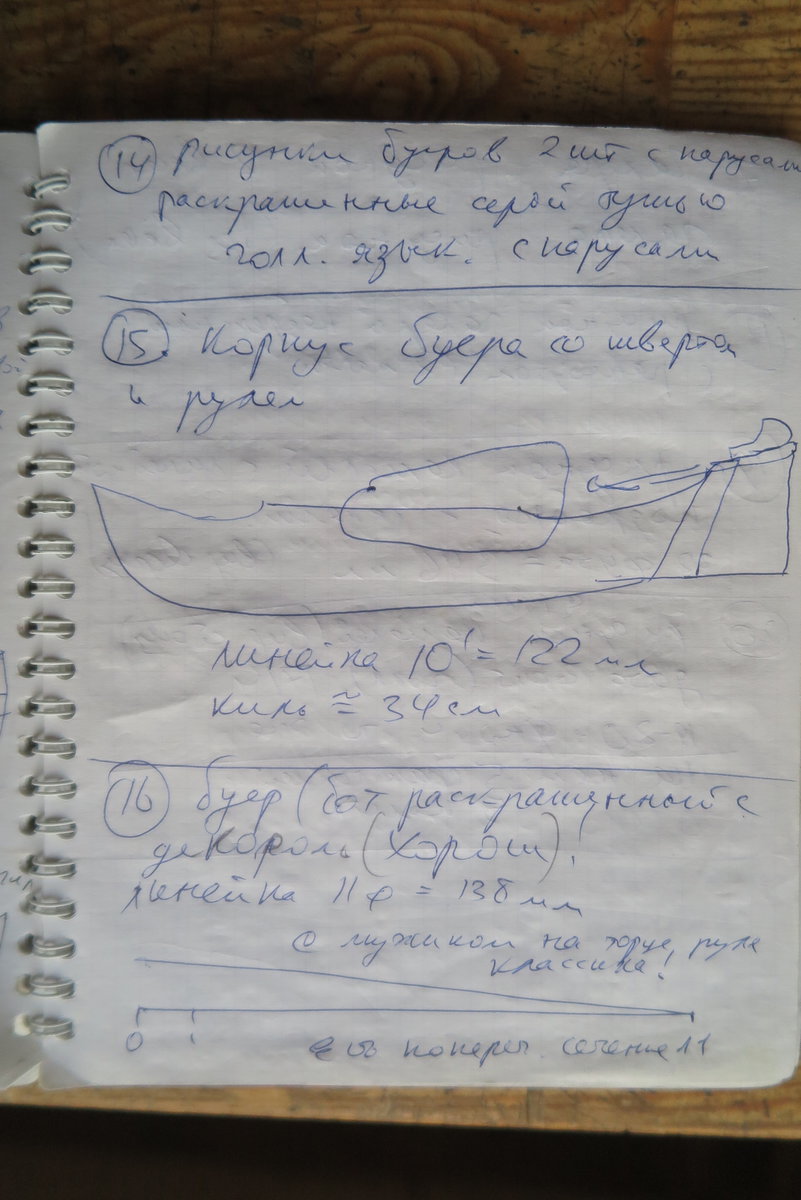 14 рисунки буеров 2 шт с парусами
раскрашенные серой тушью
голл. язык. с парусами
15. Корпус буера со швертом
и рулем
линейка 10' = 122 мм
киль ≅ 34 см
16 буер (бот раскрашенный с
декором (хорош)!
линейка 11 ф = 138 мм
с мужиком на торце руля
классика!
0 1
есть попереч. сечение 11